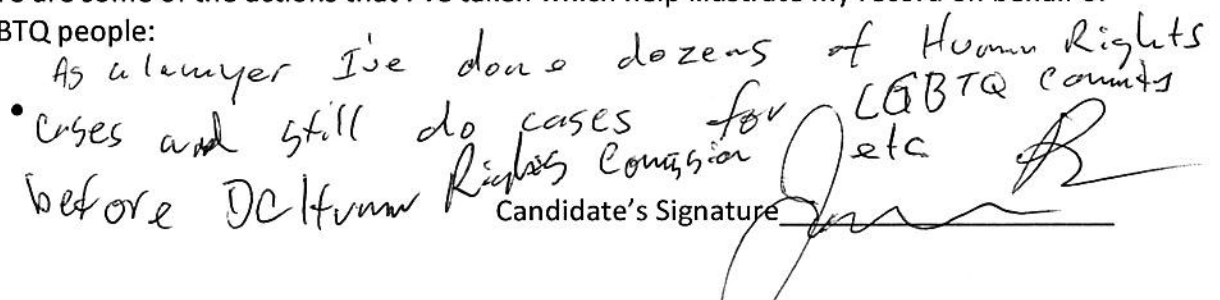 BTQ people:
As a lawyer I've done dozens of Human Rights
• cases and still do cases for LGBTQ
before DC Human Rights Comission etc
Candidate's Signature